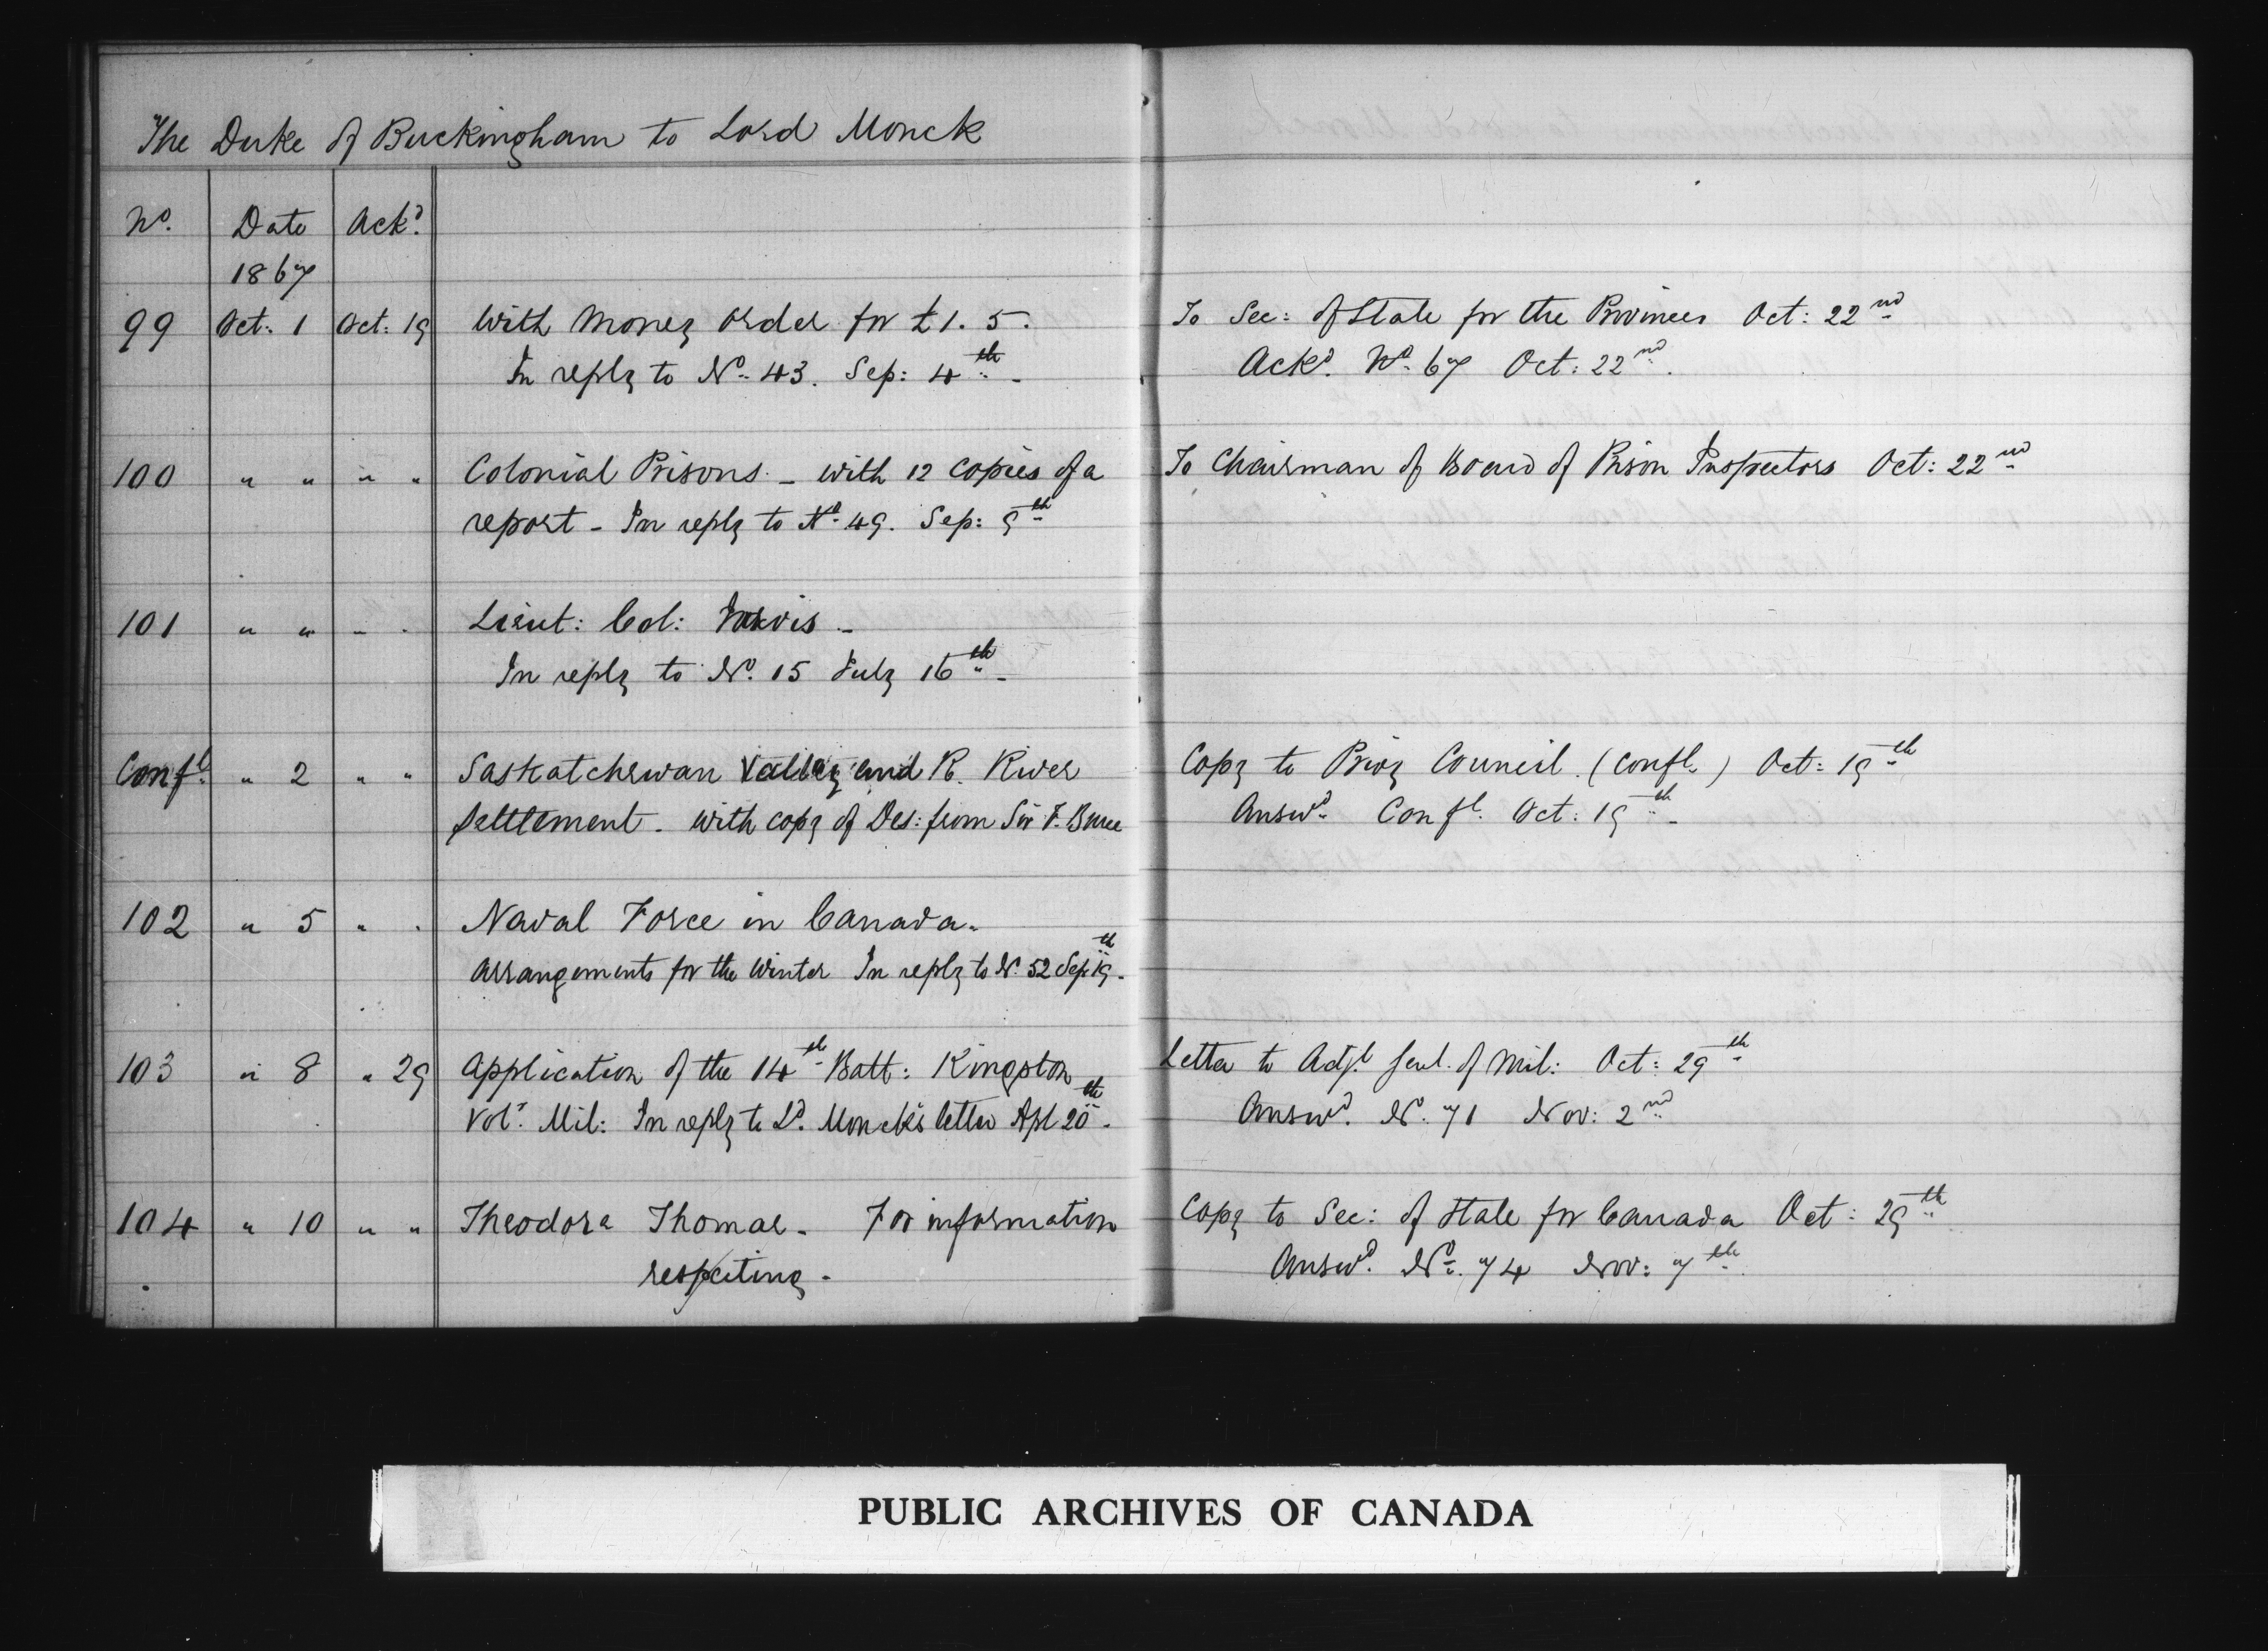 The Duke of Buckingham to Lord Monck
No. Date Ackd.
1867
99 Oct: 1 Oct: 19 With Money order for £1. 5. To Sec: of State for the Provinces Oct: 22nd
In reply to No. 43. Sep: 4th - Ackd. No. 67 Oct: 22nd.
100 " " " " Colonial Prisons. - with 12 copies of a To Chairman of Board of Prison Inspectors Oct: 22nd
report - In reply to No. 49. Sep: 9th
101 " " " " Lieut: Col: Jarvis -
In reply to No. 15 July 16th -
Confl. " 2 " " Saskatchewan Valley and R. River Copy to Privy Council. (Confl.) Oct: 19th
Settlement - with copy of Des: from Sir F. Bruce Answd. Confl. Oct: 19th -
102 " 5 " " Naval Force in Canada.
Arrangements for the Winter In reply to No. 52 Sep: 19th -
103 " 8 " 29 Application of the 14th Batt: Kingston Letter to Adjt. Genl. of Mil: Oct: 29th
Volr. Mil: In reply to Ld. Monck's letter Apl 20th - Answd. No. 71 Nov: 2nd
104 " 10 " " Theodora Thomas - For information Copy to Sec: of State for Canada Oct: 29th
respecting - Answd. No. 74 Nov: 7th
PUBLIC ARCHIVES OF CANADA